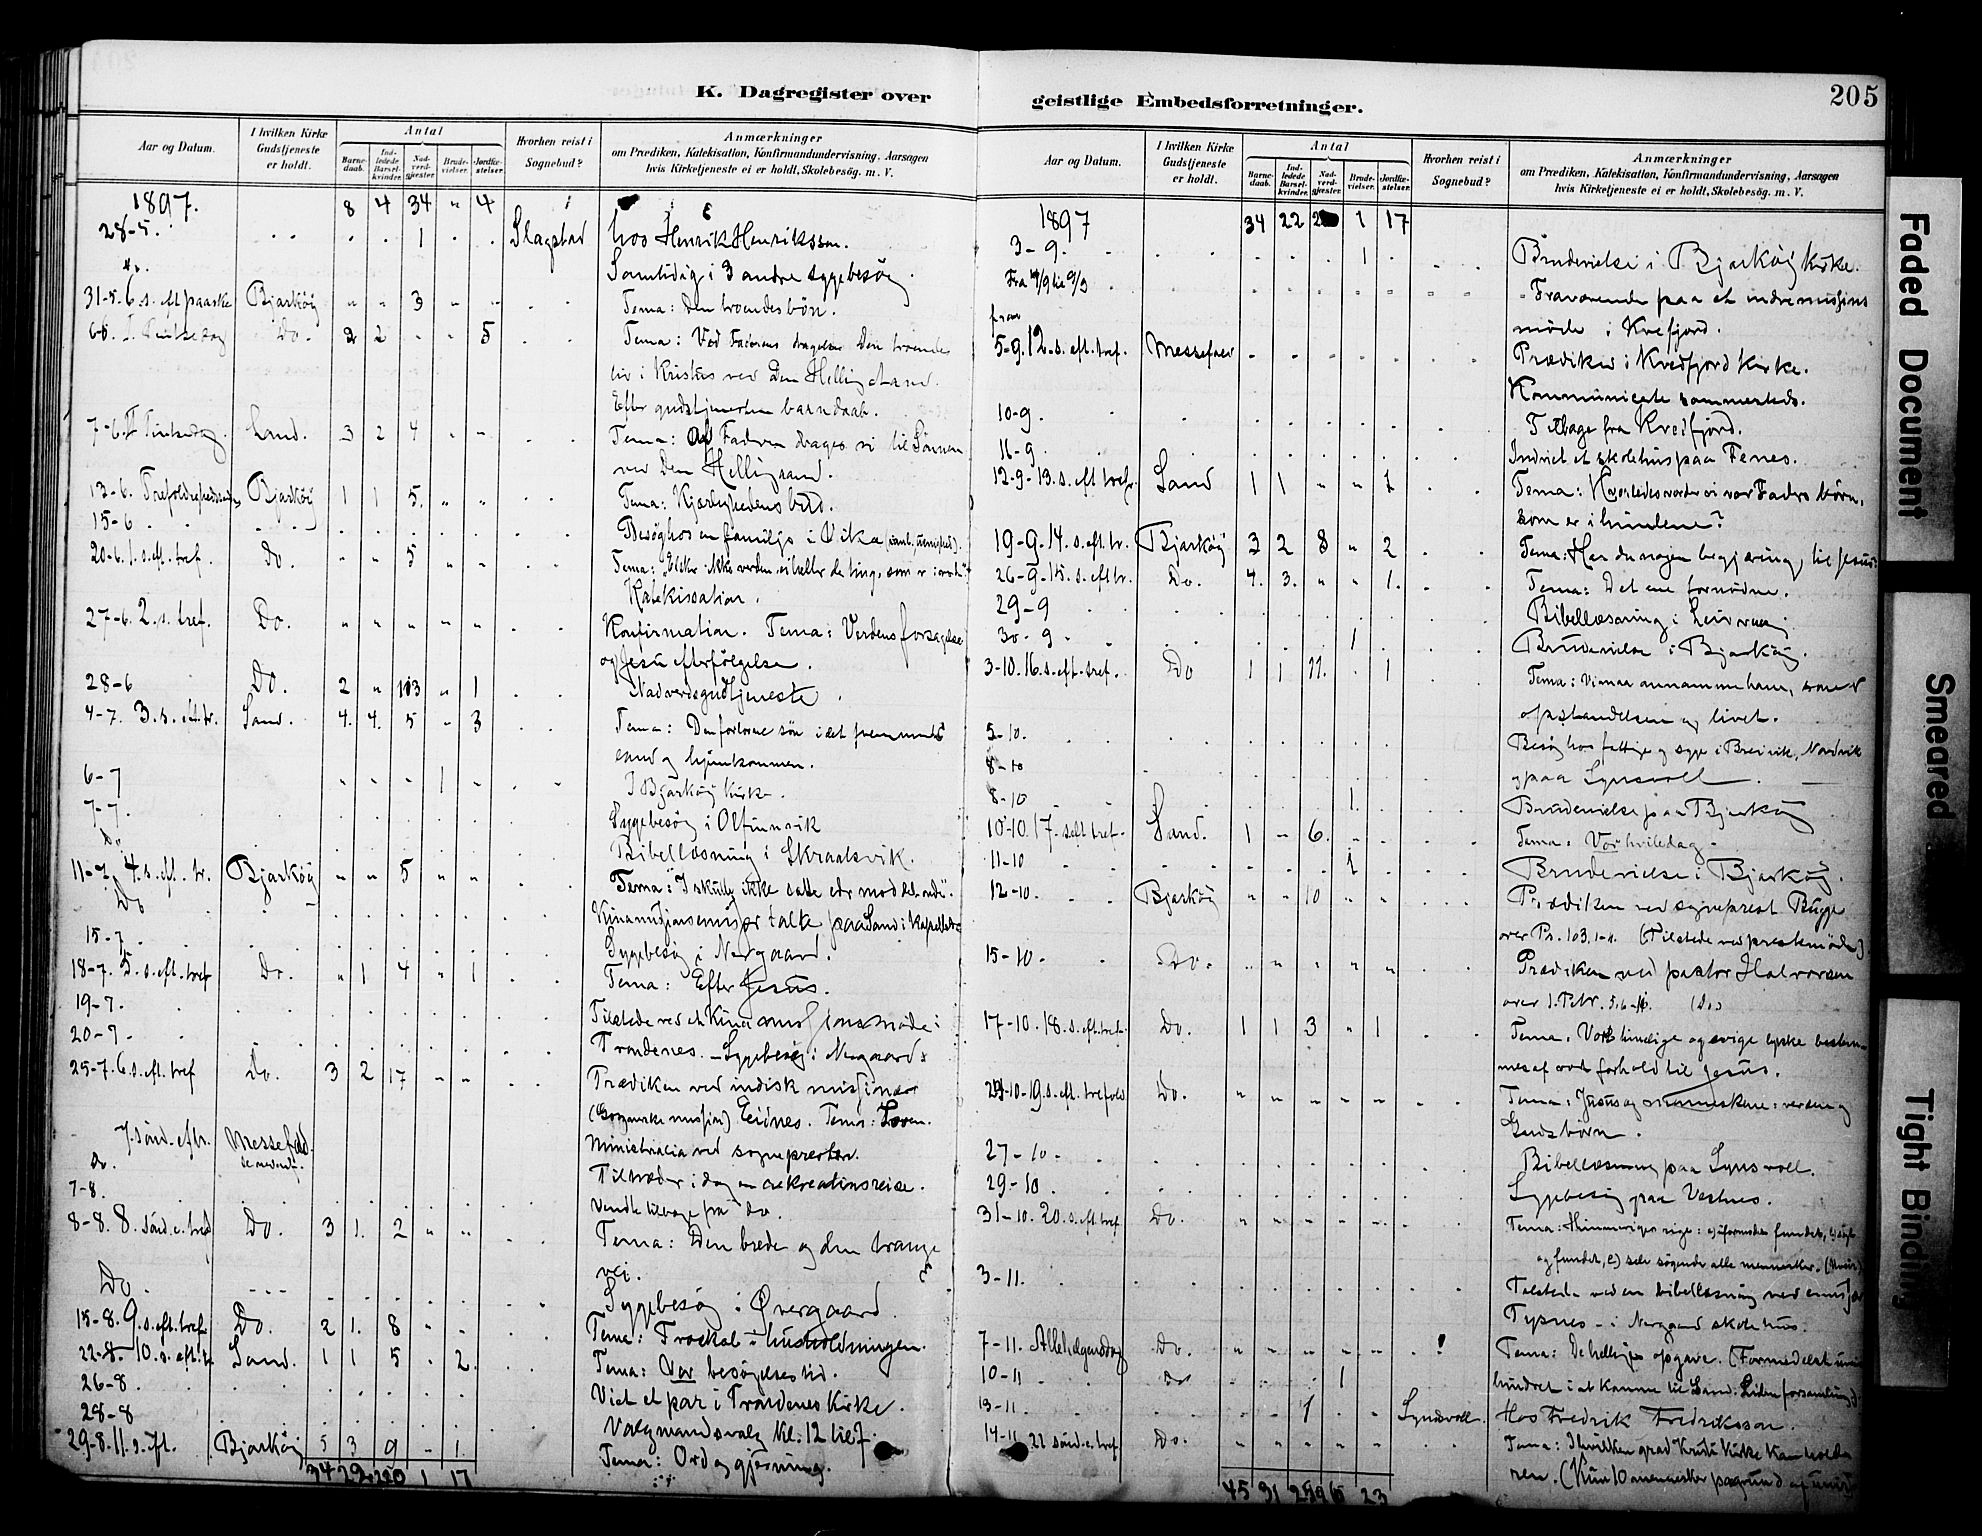 205
K. Dagregister over geistlige Embedsforretninger.
Aar og Datum.
I hvilken Kirke Gudstjeneste er holdt.
Antal
Barnedaab.
Indledede Barselkvinder.
Nadverdgjester.
Brudevielser.
Jordfæstelser.
Hvorhen reist i Sognebud?
Anmærkninger
om Prædiken, Katekisation, Konfirmandundervisning, Aarsagen
hvis Kirketjeneste ei er holdt, Skolebesøg. m. V.
1897. 8 4 34 " 4
28-5. 1 Slagstad hos Henrik Henriksson.
Do. Samtidig i 3 andre sygebesøg.
31-5. 6. s. eft paaske Bjarköy " " 3 " " Tema: Den troendes bön.
6-6. I. Pintsedag Do. 2 2 5 Tema: Ved Faderens dragelse Den troende
liv i Kristus ved Den Hellig Aand.
Efter gudstjenesten barndaab.
7-6. II Pintsedag. Sand. 3 2 4 Tema: Af Fadren drages vi til Sönnen
ved Den Helligaand.
13-6. Trefoldighedssöndag Bjarköy 1 1 5. " " Tema: Kjærlighedens bud.
15-6 Besög hos en familje i Vika
20-6. 1. s. eft. tref. Do. " " 5 " " Tema: "Elsker ikke verden, ei heller de ting, som er i verden".
Katekisation.
27-6. 2. s. tref. Do. " " " " " Konfirmation. Tema: Verdens forsagelse
og Jesu efterfölgelse.
28-6 Do. 2 " 103 " 1 Nadverdgudtjeneste.
4-7. 3. s. eft. tr. Sand. 4. 4. 5 " 3 Tema: Den forlorne sön i det fremmede
land og hjemkommen.
6-7 " " " 1 " I Bjarköy kirke.
7-7. Sygebesög i Altinnvik
Do Bibellæsning i Skraalsvik.
11-7. 4. s. eft. tr. Bjarköy " " 5 " " Tema: "I skulle ikke sætte eder mod det onde".
Do Kinamisjonsemisær talte paa Sand i Kapellet
15-7. Sygebesög i Nergaard.
18-7. 5. s. eft. tref Do. " 1 4 " 1 Tema: Efter Jesus.
19-7. Tilstede ved et Kinamisjonsmöde i
20-7. Trondenes. - Sygebesög i Nergaard
25-7. 6. s. eft. tref Do. 3 2 17 " " Prædiken ved indisk missionær
Eidnes. Tema: Loven.
7. sönd. eftr. Messefald Ministralia ved sognepresten.
Do. Tiltræder i dag en rekreationsreise.
7-8. Vendte tilbage fra do.
8-8. 8. sönd. e. tref Do. 3 1. 2 " " Tema: Den brede og den trange
vei.
Do. Sygebesög i Øvergaard
15-8. 9. s. eft. tref. Do. 2 1. 8 " " Tema: Troskab i husholdningen.
22-8. 10. s. eft. tr. Sand. 1 1 5 . 2. Tema: Vor besögelses tid.
26-8. Viet et par i Trondenes Kirke.
28-8 Valgmandsvalg kl. 12 til 7.
29-8. 11. s. eft. Bjarköy 5 3 9 " 1. Tema: Ord og gjerning.
34 22 220 1 17
Aar og Datum.
I hvilken Kirke Gudstjeneste er holdt.
Antal
Barnedaab.
Indledede Barselkvinder.
Nadverdgjester.
Brudevielser.
Jordfæstelser.
Hvorhen reist i Sognebud?
Anmærkninger
om Prædiken, Katekisation, Konfirmandundervisning, Aarsagen
hvis Kirketjeneste ei er holdt, Skolebesøg. m. V.
1897 34 22 1 17
3-9. 1. Brudevielse i Bjarköy kirke.
Fra 4/9 til 9/9 Fraværende paa et indremisjons
möde i Kvefjord.
5-9. 12. s. eft. tref. Messefald Prædiker i Kvedfjord Kirke.
Kommunicete sammesteds.
10-9. Tilbage fra Kvedfjord.
11-9 Indviet et skolehus paa Fenes.
12-9. 13. s. eft tref. Sand 1 1 " " 1 Tema: Hvorledes vorder vi vor Faders börn,
som er i himlene?
19-9. 14. s. eft. tr. Bjarköy 3 2 8 " 2 Tema: Har du nogen begjæring til Jesus?
26-9. 15. s. eft tr. Do. 4. 3. " " 1. Tema: Det ene fornödne.
29-9 Bibellæsning i Leirvaag
30-9. 1 Brudevielse i Bjarköy.
3-10. 16. s. eft. tref. Do 1 1 11. 1 Tema: Vi maa annamme ham, som er
opstandelsen og livet.
5-10. Besög hos fattige og syge i Breivik, Nordvik
8-10 og paa Lynsvoll.
8-10 1. Brudevielse paa Bjarköy
10-10. 17. s. eft tref. Sand. 1 " 6. " Tema: Vor hviledag.
11-10 1 Brudevielse i Bjarköy.
12-10. Bjarköy " " 10 " " Prædiken ved sogneprest Bugge
over Ps. 103, 1-11. (Tilstede ved prestemöde).
15-10. Do. " " " " " Prædiken ved pastor Halvorsen
over 1. Petr. 5. 6-11. (Do.)
17-10. 18. s. eft. tref. Do. 1 1 3 " 1 Tema: Vor timelige og evige lykke bestem-
mes af vort forhold til Jesus.
24-10. 19. s. eft. trefold Do. " " " " " Tema: Jesus og menneskene: verden og
Guds börn.
27-10. Bibellæsning paa Lynsvoll.
29-10. Sygebesög paa Vestnes.
31-10. 20. s. eft. tref Do. " " " " " Tema: Himmeriges rige:
og fundet, c) selv søgende alle mennesker.
3-11. Tilstede ved en bibellæsning ved emisjær
Typnes - i Nergaard skolehus.
7-11. Allehelgensdag Do. " " " " " Tema: De helliges opgave.
10-11 Do 1 hindret i at komme til Sand. Liden forsamling).
13-11. 1 Lynsvoll. Hos Fredrik Fredriksson.
14-11 21 sönd. e. tref Do. " " " " " Tema: I hvilken grad Kristi kirke kan holde
ren. (Kun 10 mennesker paa grund af uveir)
45 31 23